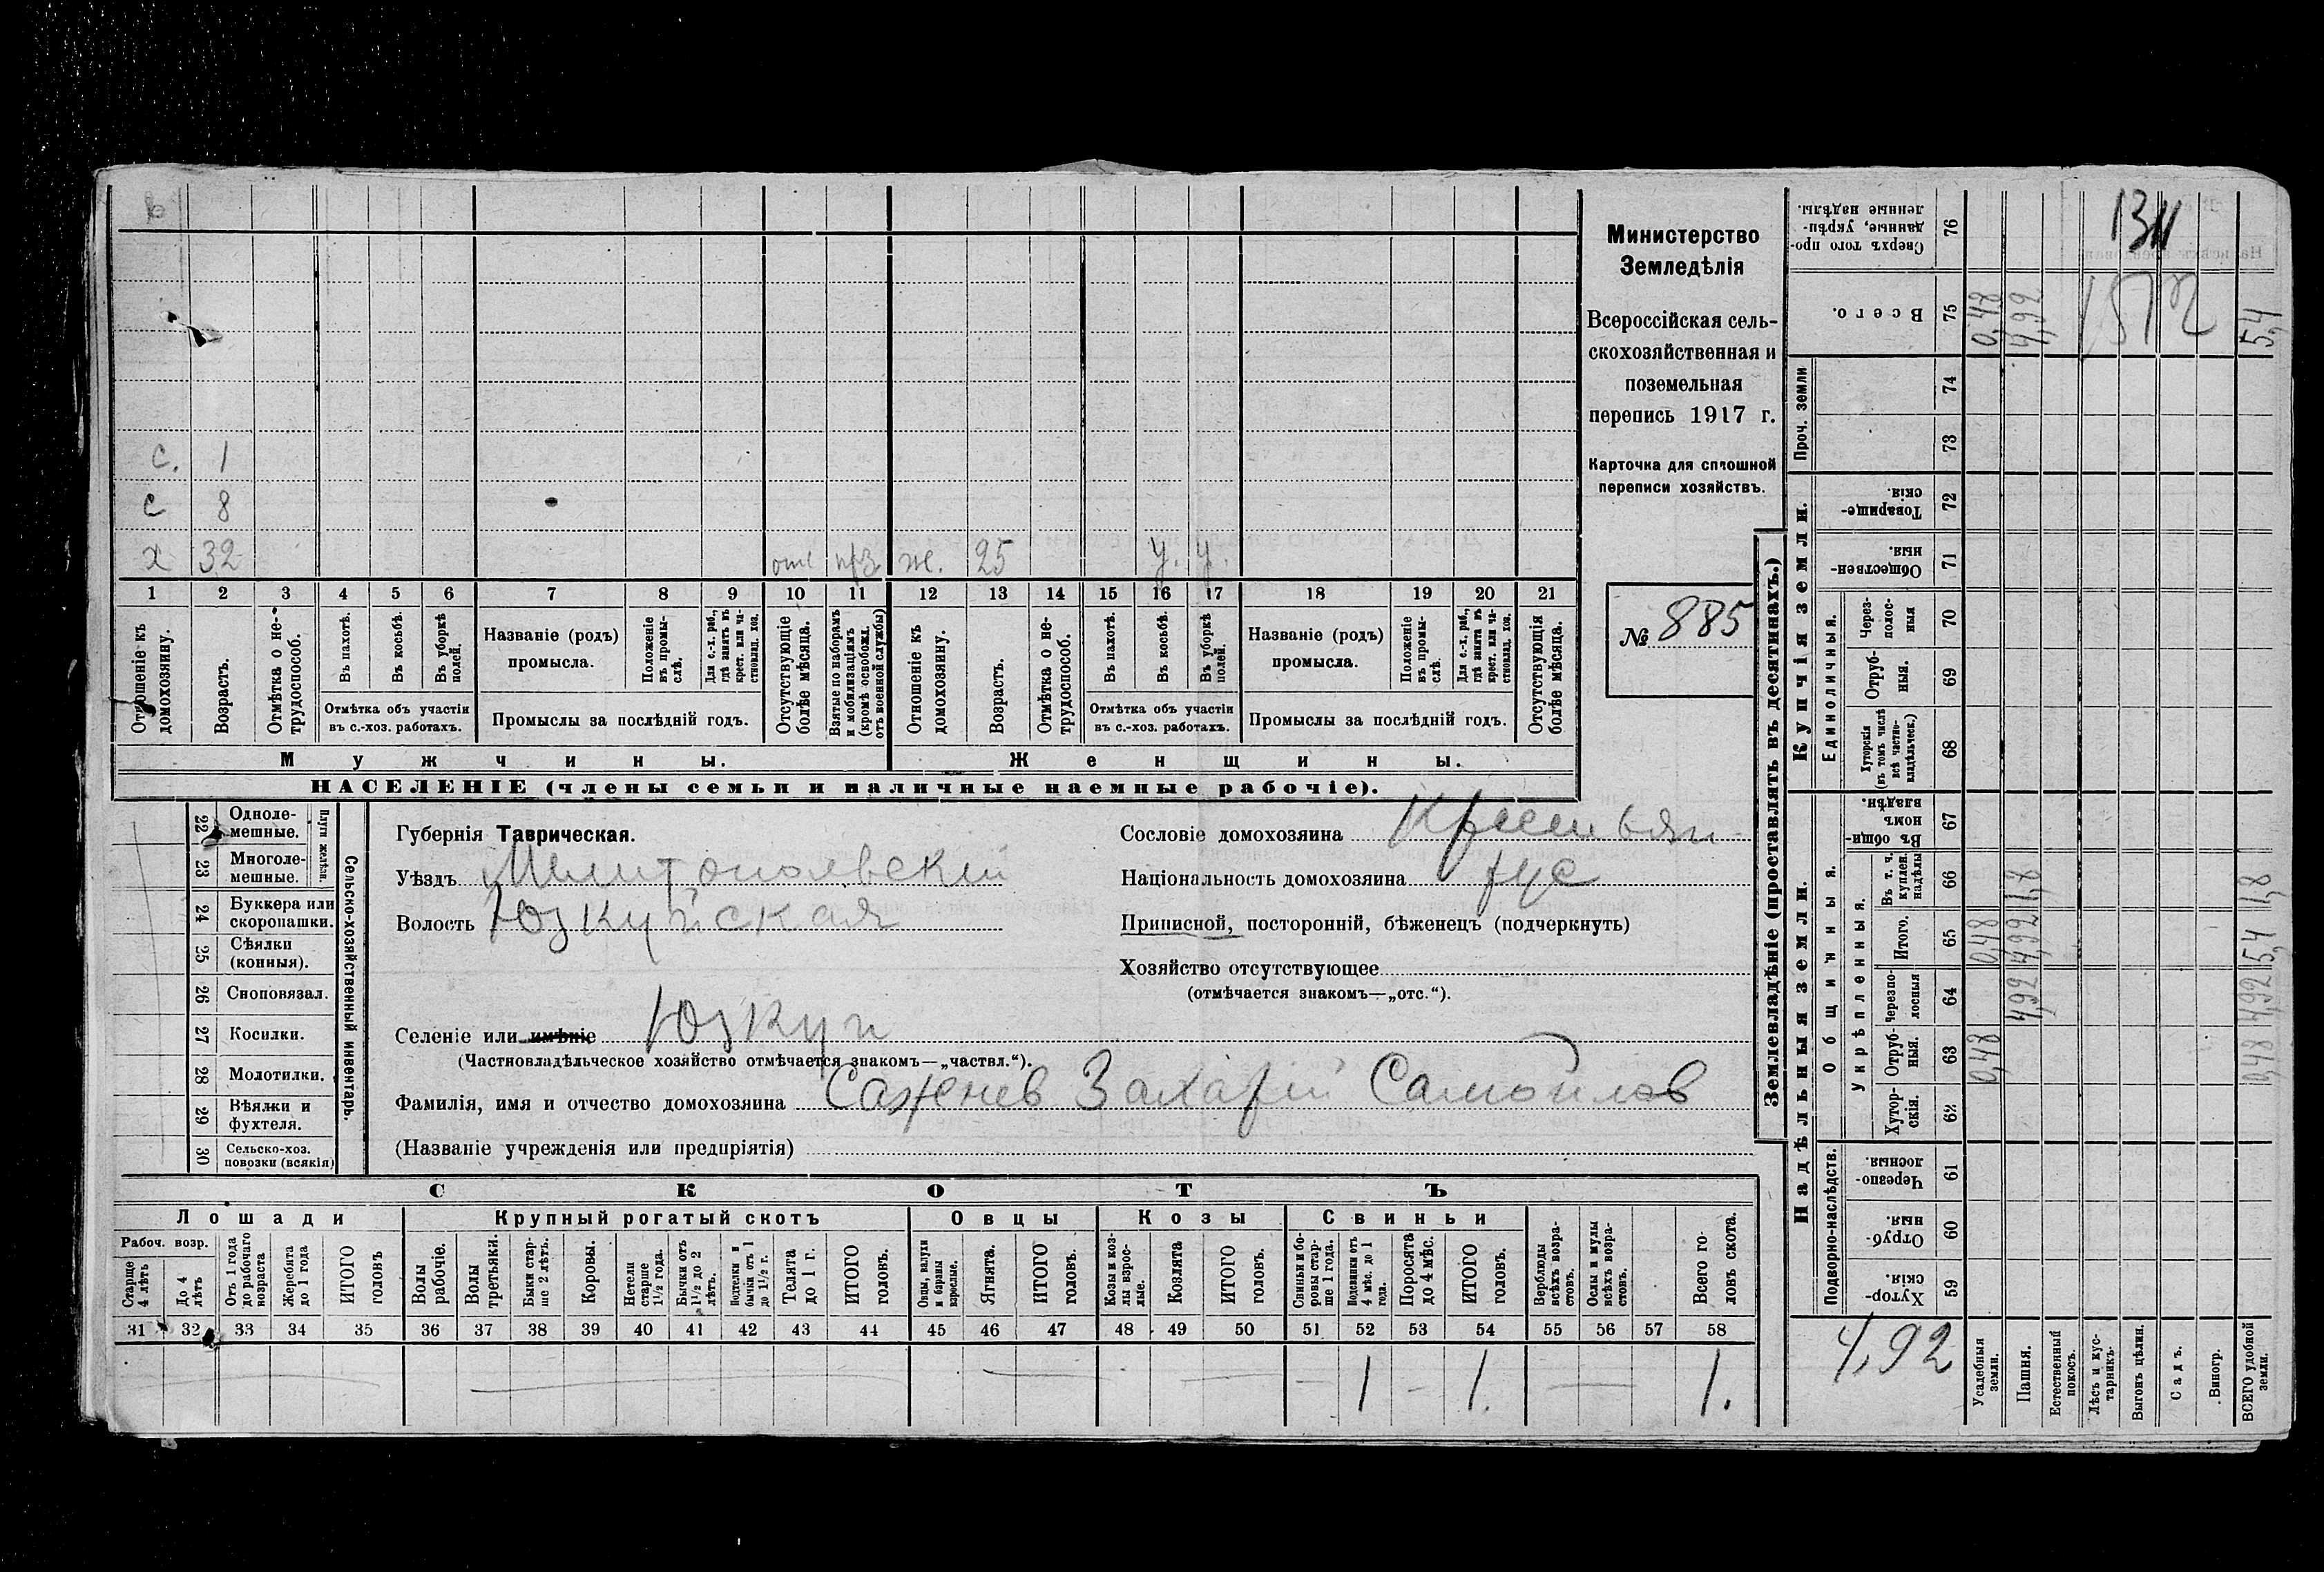 с. 1
с 8
х 32 отс прз. ж. 25 у. у.
1 2 3 4 5 6 7 8 9 10 11 12 13 14 15 16 17 18 19 20 21
Отношеніе къ домохозяину.
Возрастъ.
Отмѣтка о нетрудоспособ.
Въ пахотѣ.
Въ косьбѣ.
Въ уборкѣ полей.
Отмѣтка объ участіи
въ с.-хоз. работахъ.
Названіе (родъ)
промысла.
Положеніе въ промыслѣ.
Для с.-х. раб., гдѣ занятъ въ крест. или частновлад. хоз.
Промыслы за послѣдній годъ.
Отсутствующіе болѣе мѣсяца.
Взятые по наборамъ и мобилизаціямъ (кромѣ освобожд. отъ военной службы)
Отношеніе къ домохозяину.
Возрастъ.
Отмѣтка о нетрудоспособ.
Въ пахотѣ.
Въ косьбѣ.
Въ уборкѣ полей.
Отмѣтка объ участіи
въ с.-хоз. работахъ.
Названіе (родъ)
промысла.
Положеніе въ промыслѣ.
Для с.-х. раб., гдѣ занята въ крест. или частновлад. хоз.
Промыслы за послѣдній годъ.
Отсутствующія болѣе мѣсяца.
Мужчины.
Женщины.
НАСЕЛЕНІЕ (члены семьи и наличные наемные рабочіе).
Министерство
Земледѣлія
Всероссійская сель-
скохозяйственная и
поземельная
перепись 1917 г.
Карточка для сплошной
переписи хозяйствъ.
№ 885
22 Одноле-
мешные.
23 Многоле-
мешные.
Плуги желѣзн.
24 Буккера или
скоропашки.
25 Сѣялки
(конныя).
26 Сноповязал.
27 Косилки.
28 Молотилки.
29 Вѣялки и
фухтеля.
30 Сельско-хоз.
повозки (всякія)
Сельско-хозяйственный инвентарь.
Губернія Таврическая.
Уѣздъ Мелитопольвскій
Волость Юзкуйская
Селеніе или имѣніе Юзкуи
(Частновладѣльческое хозяйство отмѣчается знакомъ—„частвл.“).
Фамилія, имя и отчество домохозяина Саженев Захарій Самойлов
(Названіе учрежденія или предпріятія)
Сословіе домохозяина Крестьян
Національность домохозяина рус
Приписной, посторонній, бѣженецъ (подчеркнуть)
Хозяйство отсутствующее
(отмѣчается знакомъ—„отс.“).
СКОТЪ
Лошади
Крупный рогатый скотъ
Овцы
Козы
Свиньи
Рабоч. возр.
Старше 4 лѣтъ
До 4 лѣтъ
Отъ 1 года до рабочаго возраста
Жеребята до 1 года
ИТОГО головъ
Волы рабочіе.
Волы третьяки.
Быки старше 2 лѣтъ.
Коровы.
Нетели старше 1½ года.
Бычки отъ 1½ до 2 лѣтъ.
Подтелки и бычки отъ 1 до 1½ г.
Телята до 1 г.
ИТОГО головъ.
Овцы, валухи и бараны взрослые.
Ягнята.
ИТОГО головъ.
Козы и козлы взрослые.
Козлята
ИТОГО головъ.
Свиньи и боровы старше 1 года.
Подсвинки отъ 4 мѣс. до 1 года.
Поросята до 4 мѣс.
ИТОГО головъ.
Верблюды всѣхъ возрастовъ.
Ослы и мулы всѣхъ возрастовъ.
Всего головъ скота.
31 32 33 34 35 36 37 38 39 40 41 42 43 44 45 46 47 48 49 50 51 52 53 54 55 56 57 58
— 1 — 1. — 1.
Землевладѣніе (проставлять въ десятинахъ.)
Надѣльныя земли.
Купчія земли.
Проч. земли
Сверхъ того проданные, укрѣпленные надѣлы. 76
Всего. 75 0,48 4,92 5,4
74
73
Товарищескія. 72
Общественныя. 71
Единоличныя.
Черезполосныя 70
Отрубныя. 69
Хуторскія (въ томъ числѣ всѣ частновладѣльческ.) 68
Общинныя.
Въ общинномъ владѣн. 67
Укрѣпленныя.
Въ т. ч. куплен. надѣлы 66 1,8 1,8
Итого. 65 0,48 4,92 5,4
Черезполосныя 64 4,92 4,92
Отрубныя. 63 0,48 0,48
Хуторскія. 62
Подворно-наслѣдств.
Черезполосныя. 61
Отрубныя. 60
Хуторскія. 59
4,92
Усадебныя земли.
Пашня.
Естественный покосъ.
Лѣсъ и кустарникъ.
Выгонъ цѣлин.
Садъ.
Виногр.
ВСЕГО удобной земли.